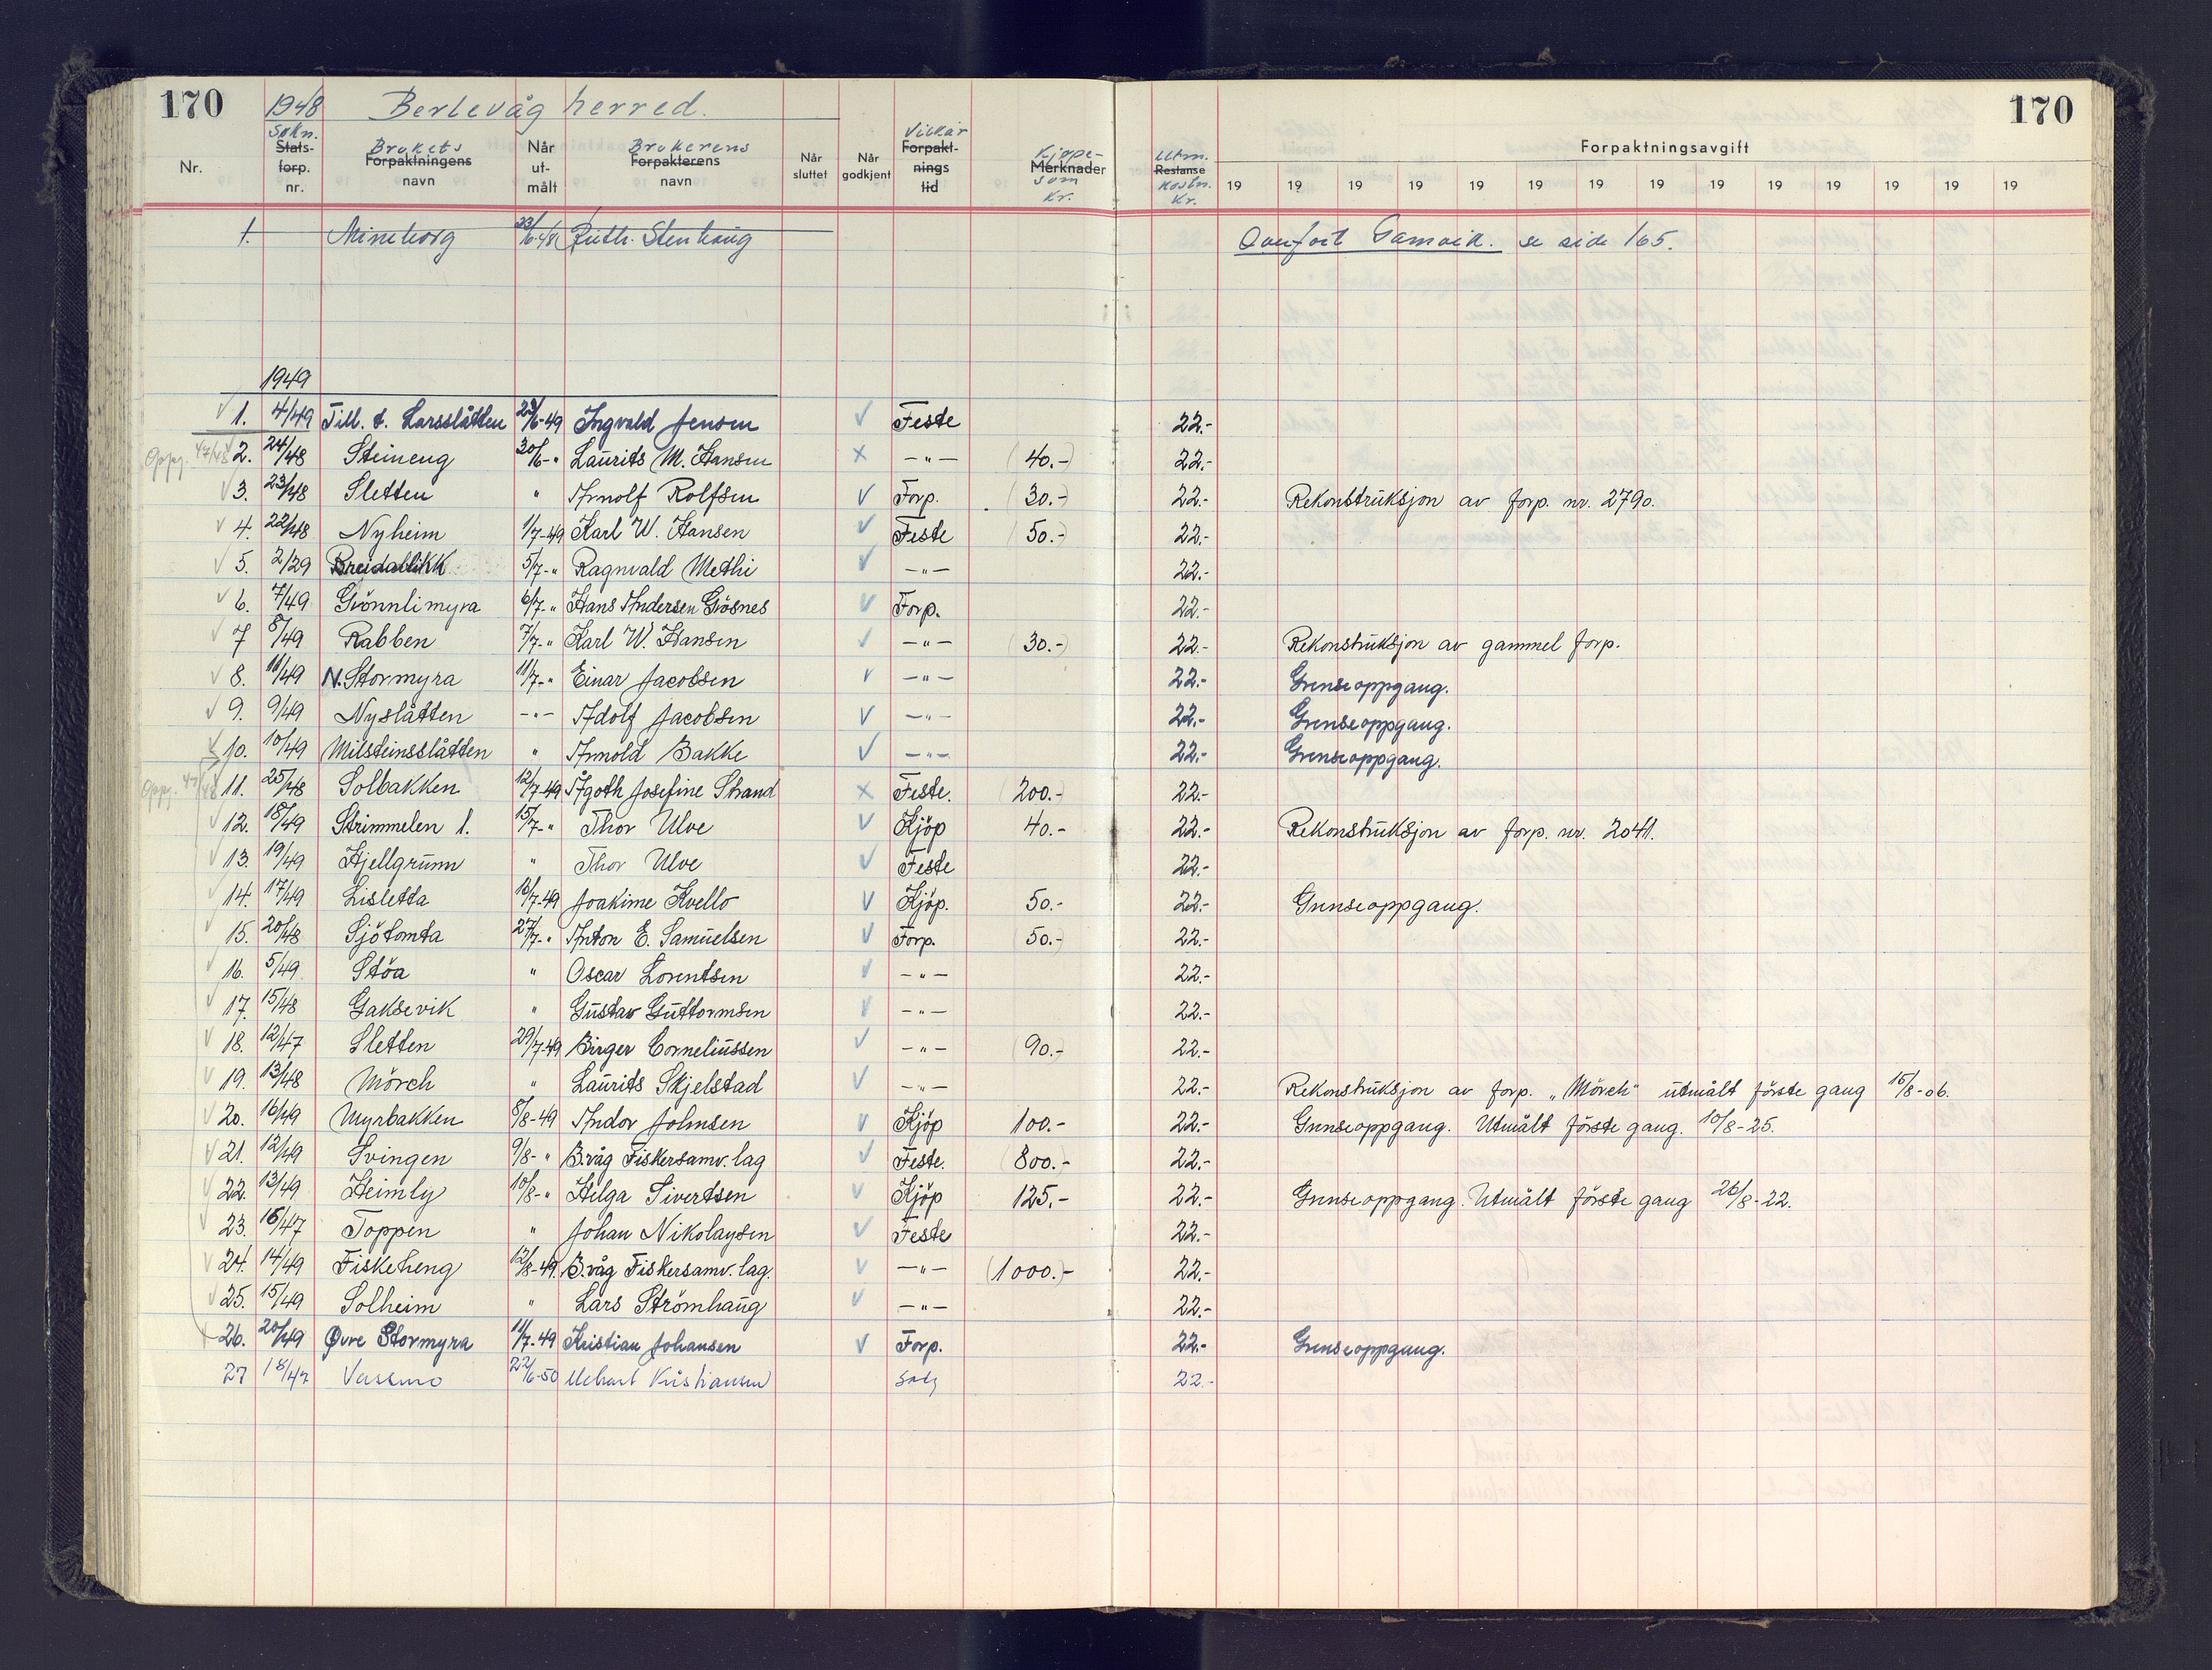 170 1948 Berlevåg herred. 170
Nr. Søkn. Stats- forp. nr. Brukets Forpaktningens navn Når ut- målt Brukerens Forpakterens navn Når sluttet Når godkjent Vilkår Forpakt- nings tid Kjøpe- Merknader sum Kr. Utm. Restanse kostn. Kr. Forpaktningsavgift
19 19 19 19 19 19 19 19 19 19 19 19 19 19
1. Mineborg 23/6-48 Ruth. Stenhaug Overført Gamvik. se side 165.
1949
√ 1. 4/49 Till. t. Larsslåtten 29/6-49 Ingvald Jensen √ Feste 22.-
Oppg. 47/48 2. 24/48 Steineng 30/6-" Laurits M. Hansen x -"- (40.-) 22.-
√ 3. 23/48 Sletten " Arnolf Rolfsen √ Forp. (30.-) 22.- Rekonstruksjon av forp. nr. 2790.
√ 4. 22/48 Nyheim 1/7-49 Karl W. Hansen √ Feste (50.-) 22.-
√ 5. 2/29 Breidablikk 5/7-" Ragnvald Methi √ -"- 22.-
√ 6. 7/49 Grönnlimyra 6/7-" Hans Andersen Grösnes √ Forp. 22.-
√ 7 8/49 Rabben 7/7-" Karl W. Hansen √ -"- (30.-) 22.- Rekonstruksjon av gammel forp.
√ 8. 11/49 N. Stormyra 11/7-" Einar Jacobsen √ -"- 22.- Grenseoppgang.
√ 9. 9/49 Nyslåtten -"- Adolf Jacobsen √ -"- 22.- Grenseoppgang.
√ 10. 10/49 Milsteinsslåtten " Arnold Bakke √ -"- 22.- Grenseoppgang.
Oppg. 47/48 11. 25/48 Solbakken 12/7-49 Ågoth Josefine Strand x Feste. (200.-) 22.-
√ 12. 18/49 Strimmelen 1. 15/7-" Thor Ulve √ Kjöp 40.- 22.- Rekonstruksjon av forp. nr. 2041.
√ 13. 19/49 Hjellgrunn " Thor Ulve √ Feste 22.-
√ 14. 17/49 Lisletta 16/7-49 Joakime Kvello √ Kjöp. 50.- 22.- Grenseoppgang.
√ 15. 20/48 Sjötomta 27/7-" Anton E. Samuelsen √ Forp. (50.-) 22.-
√ 16. 5/49 Stöa " Oscar Lorentsen √ -"- 22.-
√ 17. 15/48 Gaksevik " Gustav Guttormsen √ -"- 22.-
√ 18. 12/47 Sletten 29/7-49 Birger Corneliussen √ -"- (90.-) 22.-
√ 19. 13/48 Mörch " Laurits Skjelstad √ -"- 22.- Rekonstruksjon av forp. "Mörch" utmålt förste gang 15/8-06.
√ 20. 16/49 Myrbakken 8/8-49 Andor Johnsen √ Kjöp 100.- 22.- Grenseoppgang. Utmålt förste gang. 10/8-25.
√ 21. 12/49 Svingen 9/8-" B.våg Fiskersamv.lag √ Feste. (800.-) 22.-
√ 22. 13/49 Heimly 10/8-" Helga Sivertsen √ Kjöp 125.- 22.- Grenseoppgang. Utmålt förste gang 26/8-22.
√ 23. 16/47 Toppen " Johan Nikolaysen √ Feste 22.-
√ 24. 14/49 Fiskeheng 12/8-49. B.våg Fiskersamv.lag. √ -"- (1000.-) 22.-
√ 25. 15/49 Solheim " Lars Strömhaug √ -"- 22.-
26. 20/49 Øvre Stormyra 11/7-49 Kristian Johansen √ Forp. 22.- Grenseoppgang.
27 18/47 Vassmo 22/6-50 Kristiansen Salg 22.-